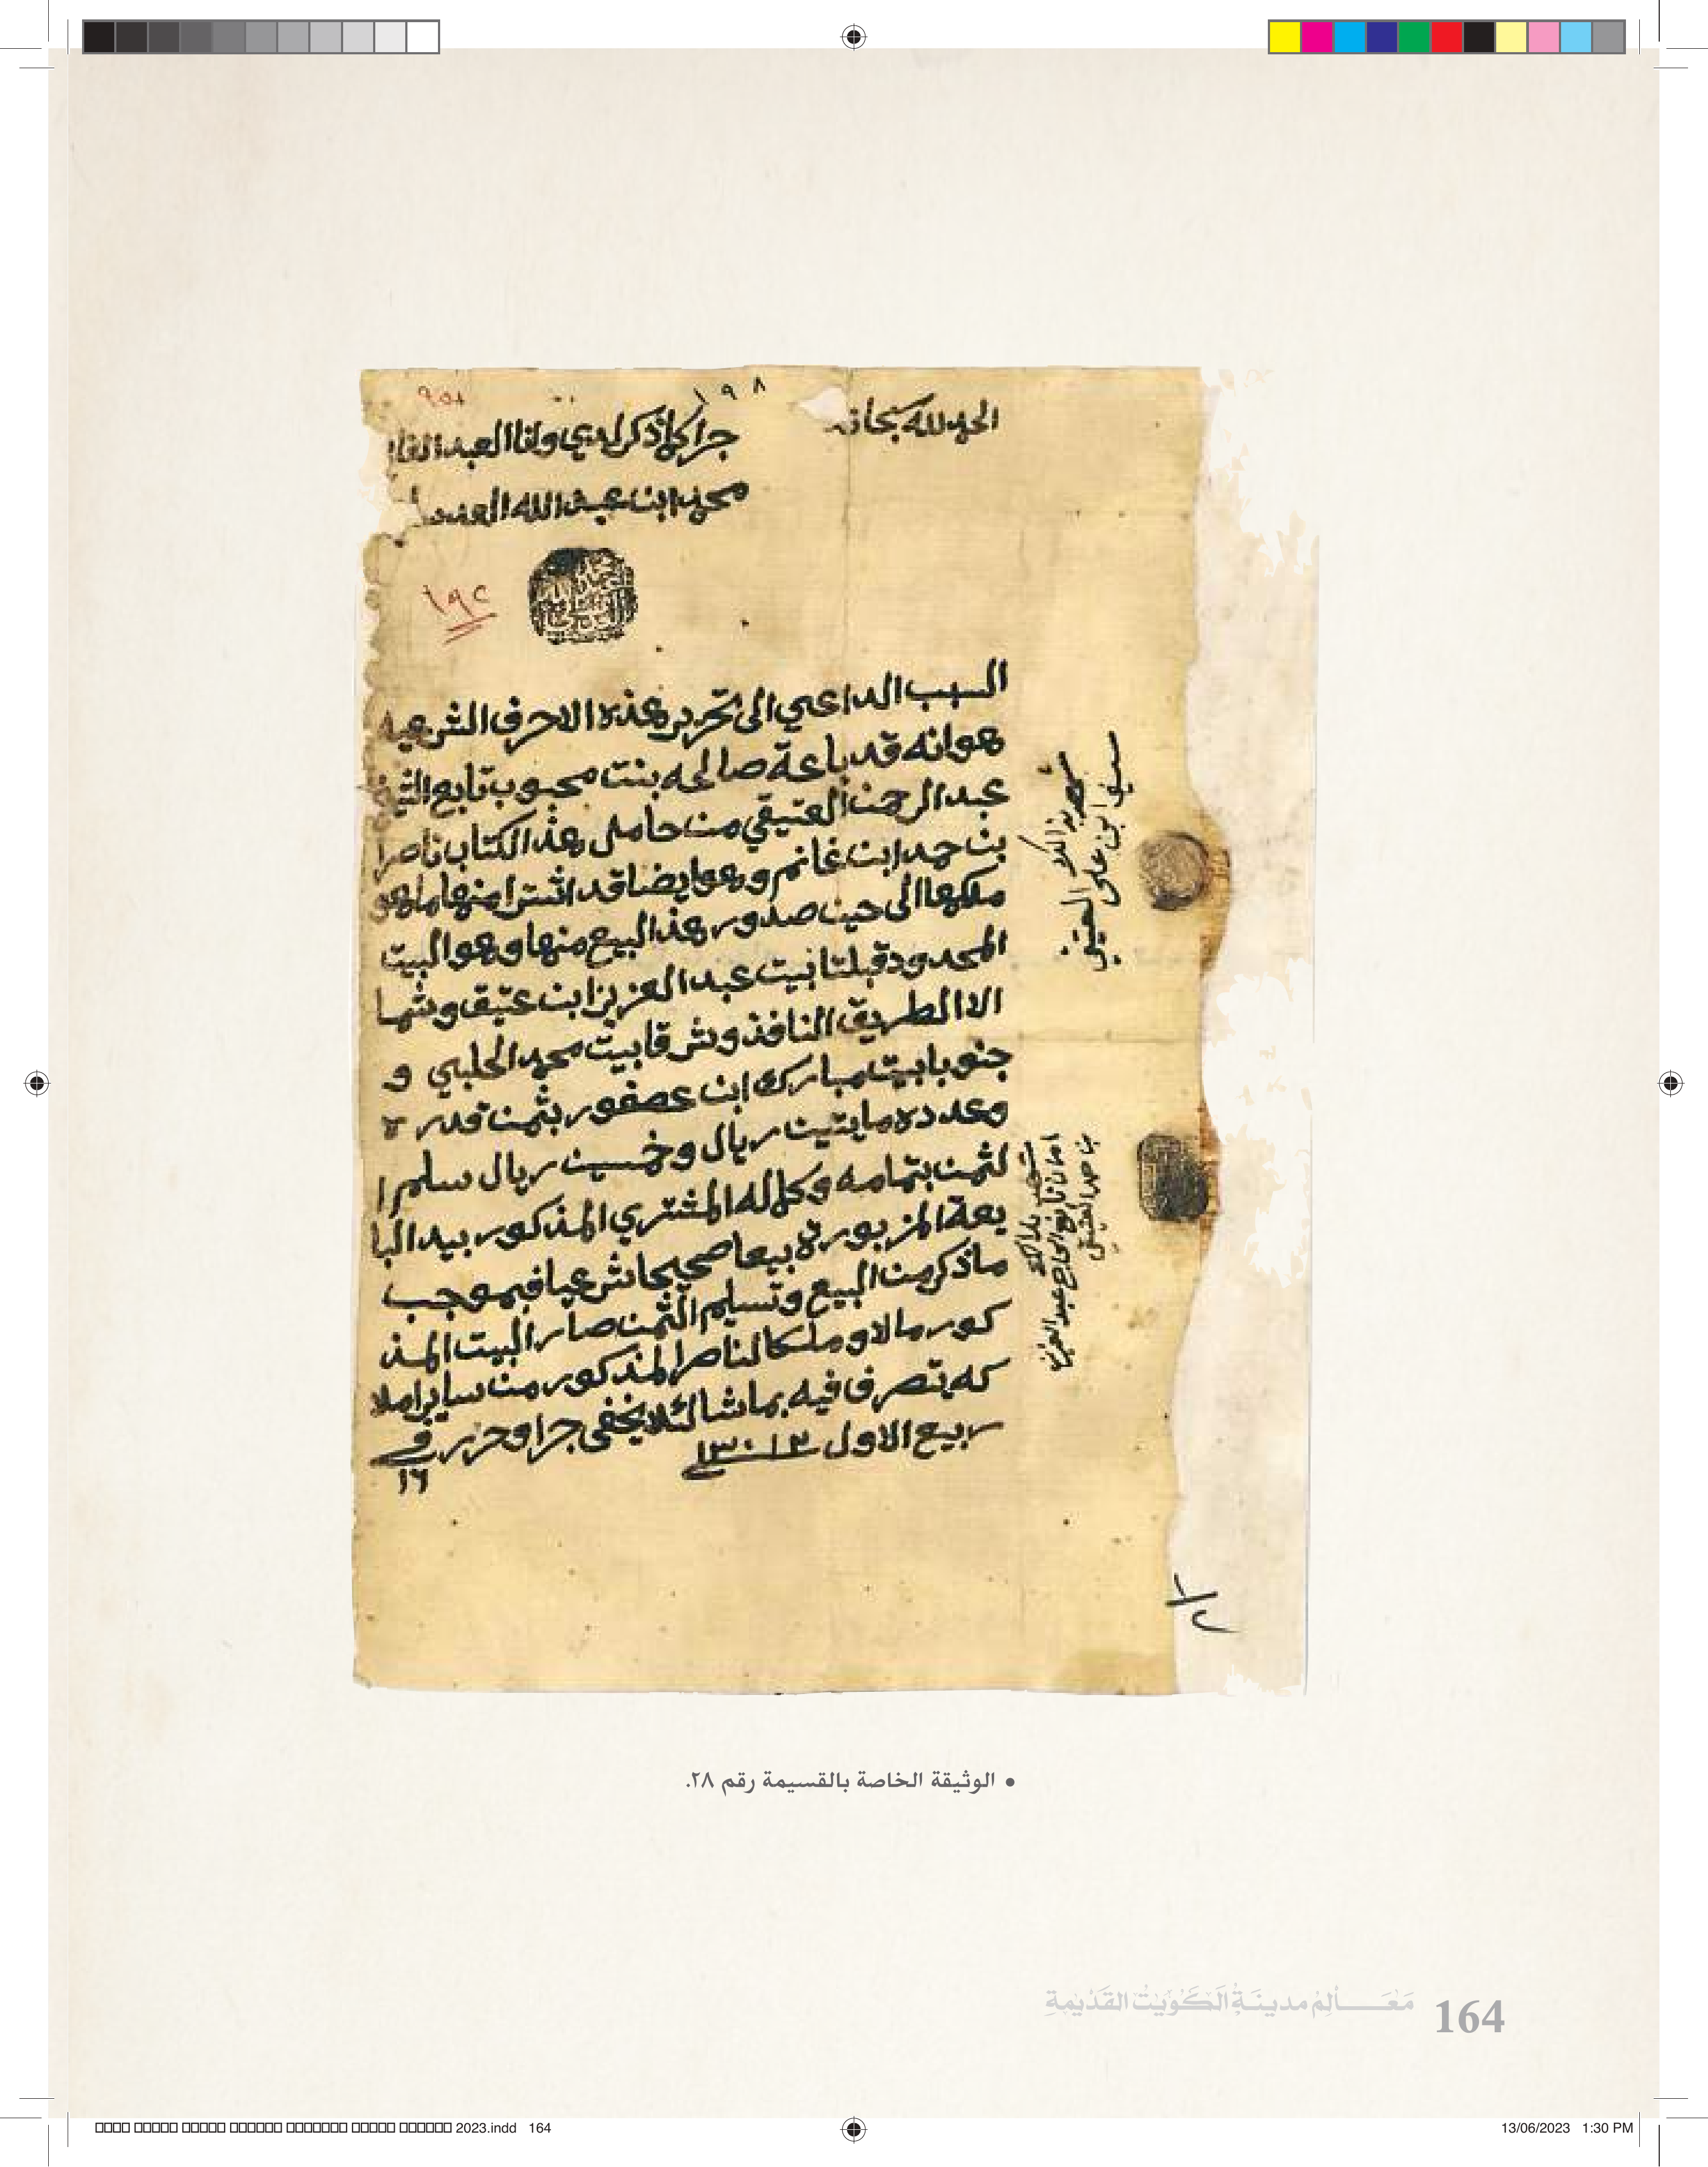 ١٩٨
٩٥٨
الحمد لله سبحانه
جرا كلما ذكر لدي وانا العبد الفا
محمد ابن عبد الله العدسا
١٩٢
السبب الداعي الى تحرير هذه الاحرف الشرعيه
هو انه قد باعة صالحه بنت محبوب تابع الشيخ
عبد الرحمن العتيقي من حامل هذا الكتاب ناصر ا
بن حمد ابن غانم وهو ايضا قد اشترا منها ما هو
ملكها الى حين صدور هذ البيع منها وهو البيت
المحدود قبلتا بيت عبد العزيز ابن عتيق وشما
الا الطريق النافذ وشرقا بيت محمد الحلبي و
جنوبا بيت مبارك ابن عصفور بثمن قدره
وعدده مايتين ريال وخمسين ريال سلم ا
لثمن بتمامه وكماله المشتري المذكور بيد البا
يعة المزبورة بيعا صحيحا شرعيا فبموجب
ماذكر من البيع وتسليم الثمن صار البيت المذ
كور مالا وملكا لناصر المذكور من ساير املا
كه يتصرف فيه بما شا لئلا يخفى جرا وحرر في
١٦
ربيع الاول ١٣٠٣
شهد بذالك
سيف ابن علي العتيقي
شهد بذالك
امان تابع الحاج عبد العزيز
بن احمد العتيقي
١/٢
• الوثيقة الخاصة بالقسيمة رقم ٢٨.
مَعَـــالِمُ مدينَةِ الكُوَيْت القَدِيمَةِ 164
2023.indd 164
13/06/2023 1:30 PM